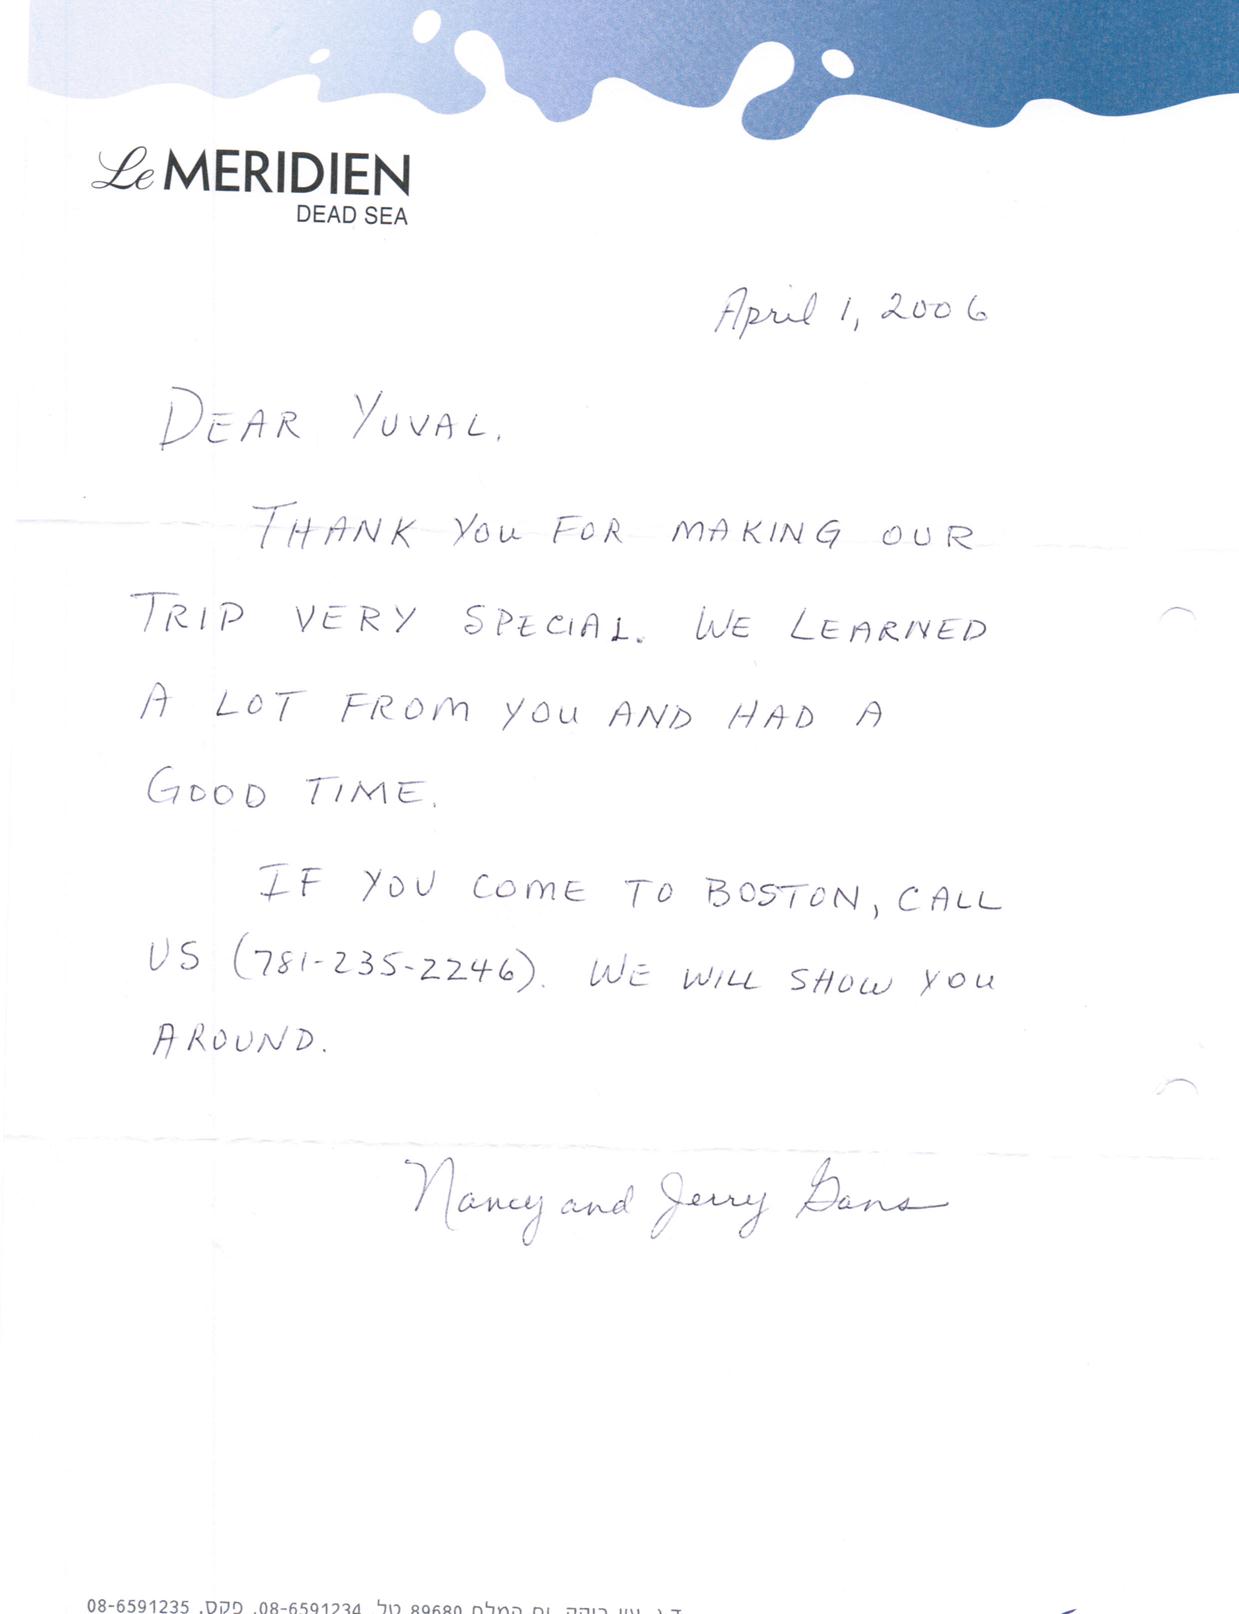 Le MERIDIEN
DEAD SEA
April 1, 2006
DEAR YUVAL,
THANK YOU FOR MAKING OUR
TRIP VERY SPECIAL. WE LEARNED
A LOT FROM YOU AND HAD A
GOOD TIME.
IF YOU COME TO BOSTON, CALL
US (781-235-2246). WE WILL SHOW YOU
AROUND.
Nancy and Jerry Gans
ד.נ. עין בוקק, ים המלח 89680 טל. 08-6591234, פקס. 08-6591235